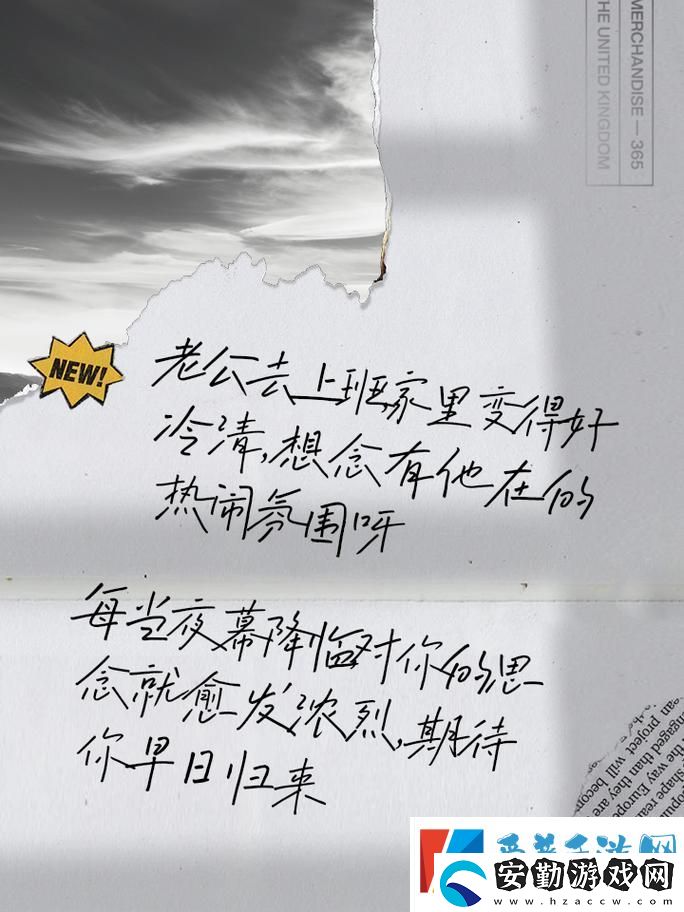 MERCHANDISE — 365
THE UNITED KINGDOM
NEW!
老公去上班家里变得好
冷清,想念有他在的
热闹氛围呀
每当夜幕降临对你的思
念就愈发浓烈,期待
你早日归来
an project will becom
ngaged than they are
the way Europe
shape rea
opu
安勤游戏网
www.hzaccw.com